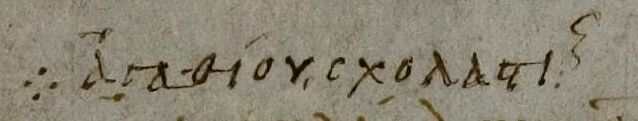 ∴ Ἀγαθίου, σχολαστι